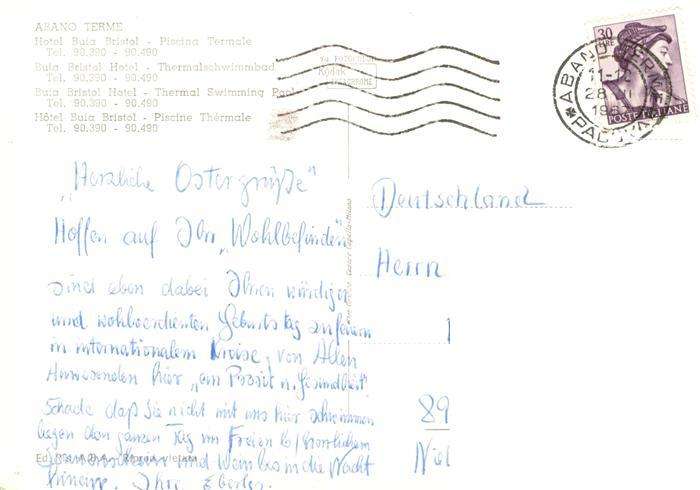 ABANO TERME
Hotel Buia Bristol - Piscina Termale
Tel. 90.390 - 90.490
Buia Bristol Hotel - Thermalschwimmbad
Tel. 90.390 - 90.490
Buia Bristol Hotel - Thermal Swimming Pool
Tel. 90.390 - 90.490
Hôtel Buia Bristol - Piscine Thérmale
Tel. 90.390 - 90.490
Kodak
30 LIRE
POSTE ITALIANE
ABANO TERME
28
PADOVA
„Herzliche Ostergrüße"
Hoffen auf Ihr „Wohlbefinden"
sind eben dabei Ihren würdigen
und wohlverdienten Geburtstag zu feiern
in internationalem Kreise, von Allen
Anwesenden hier „ein Prosit n. Gesundheit"
Schade daß Sie nicht mit uns hier schwimmen
liegen den ganzen Tag im Freien b/ herrlichem
Sonnenschein und Wein bis in die Nacht
hinein. Ihre Eberles.
Deutschland
Herrn
89